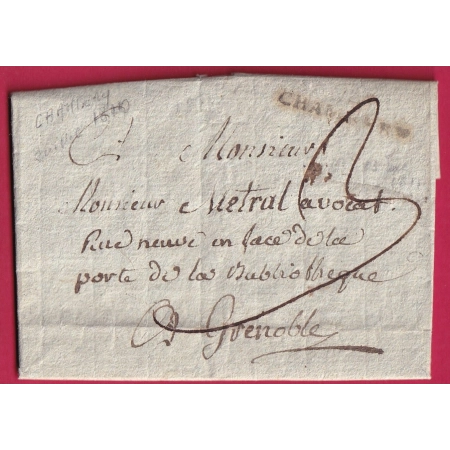 Chambéry
CHAMBERY
A Monsieur
Monsieur Metral avocat
Rue neuve en face de la
porte de la Bibliotheque
A Grenoble
3